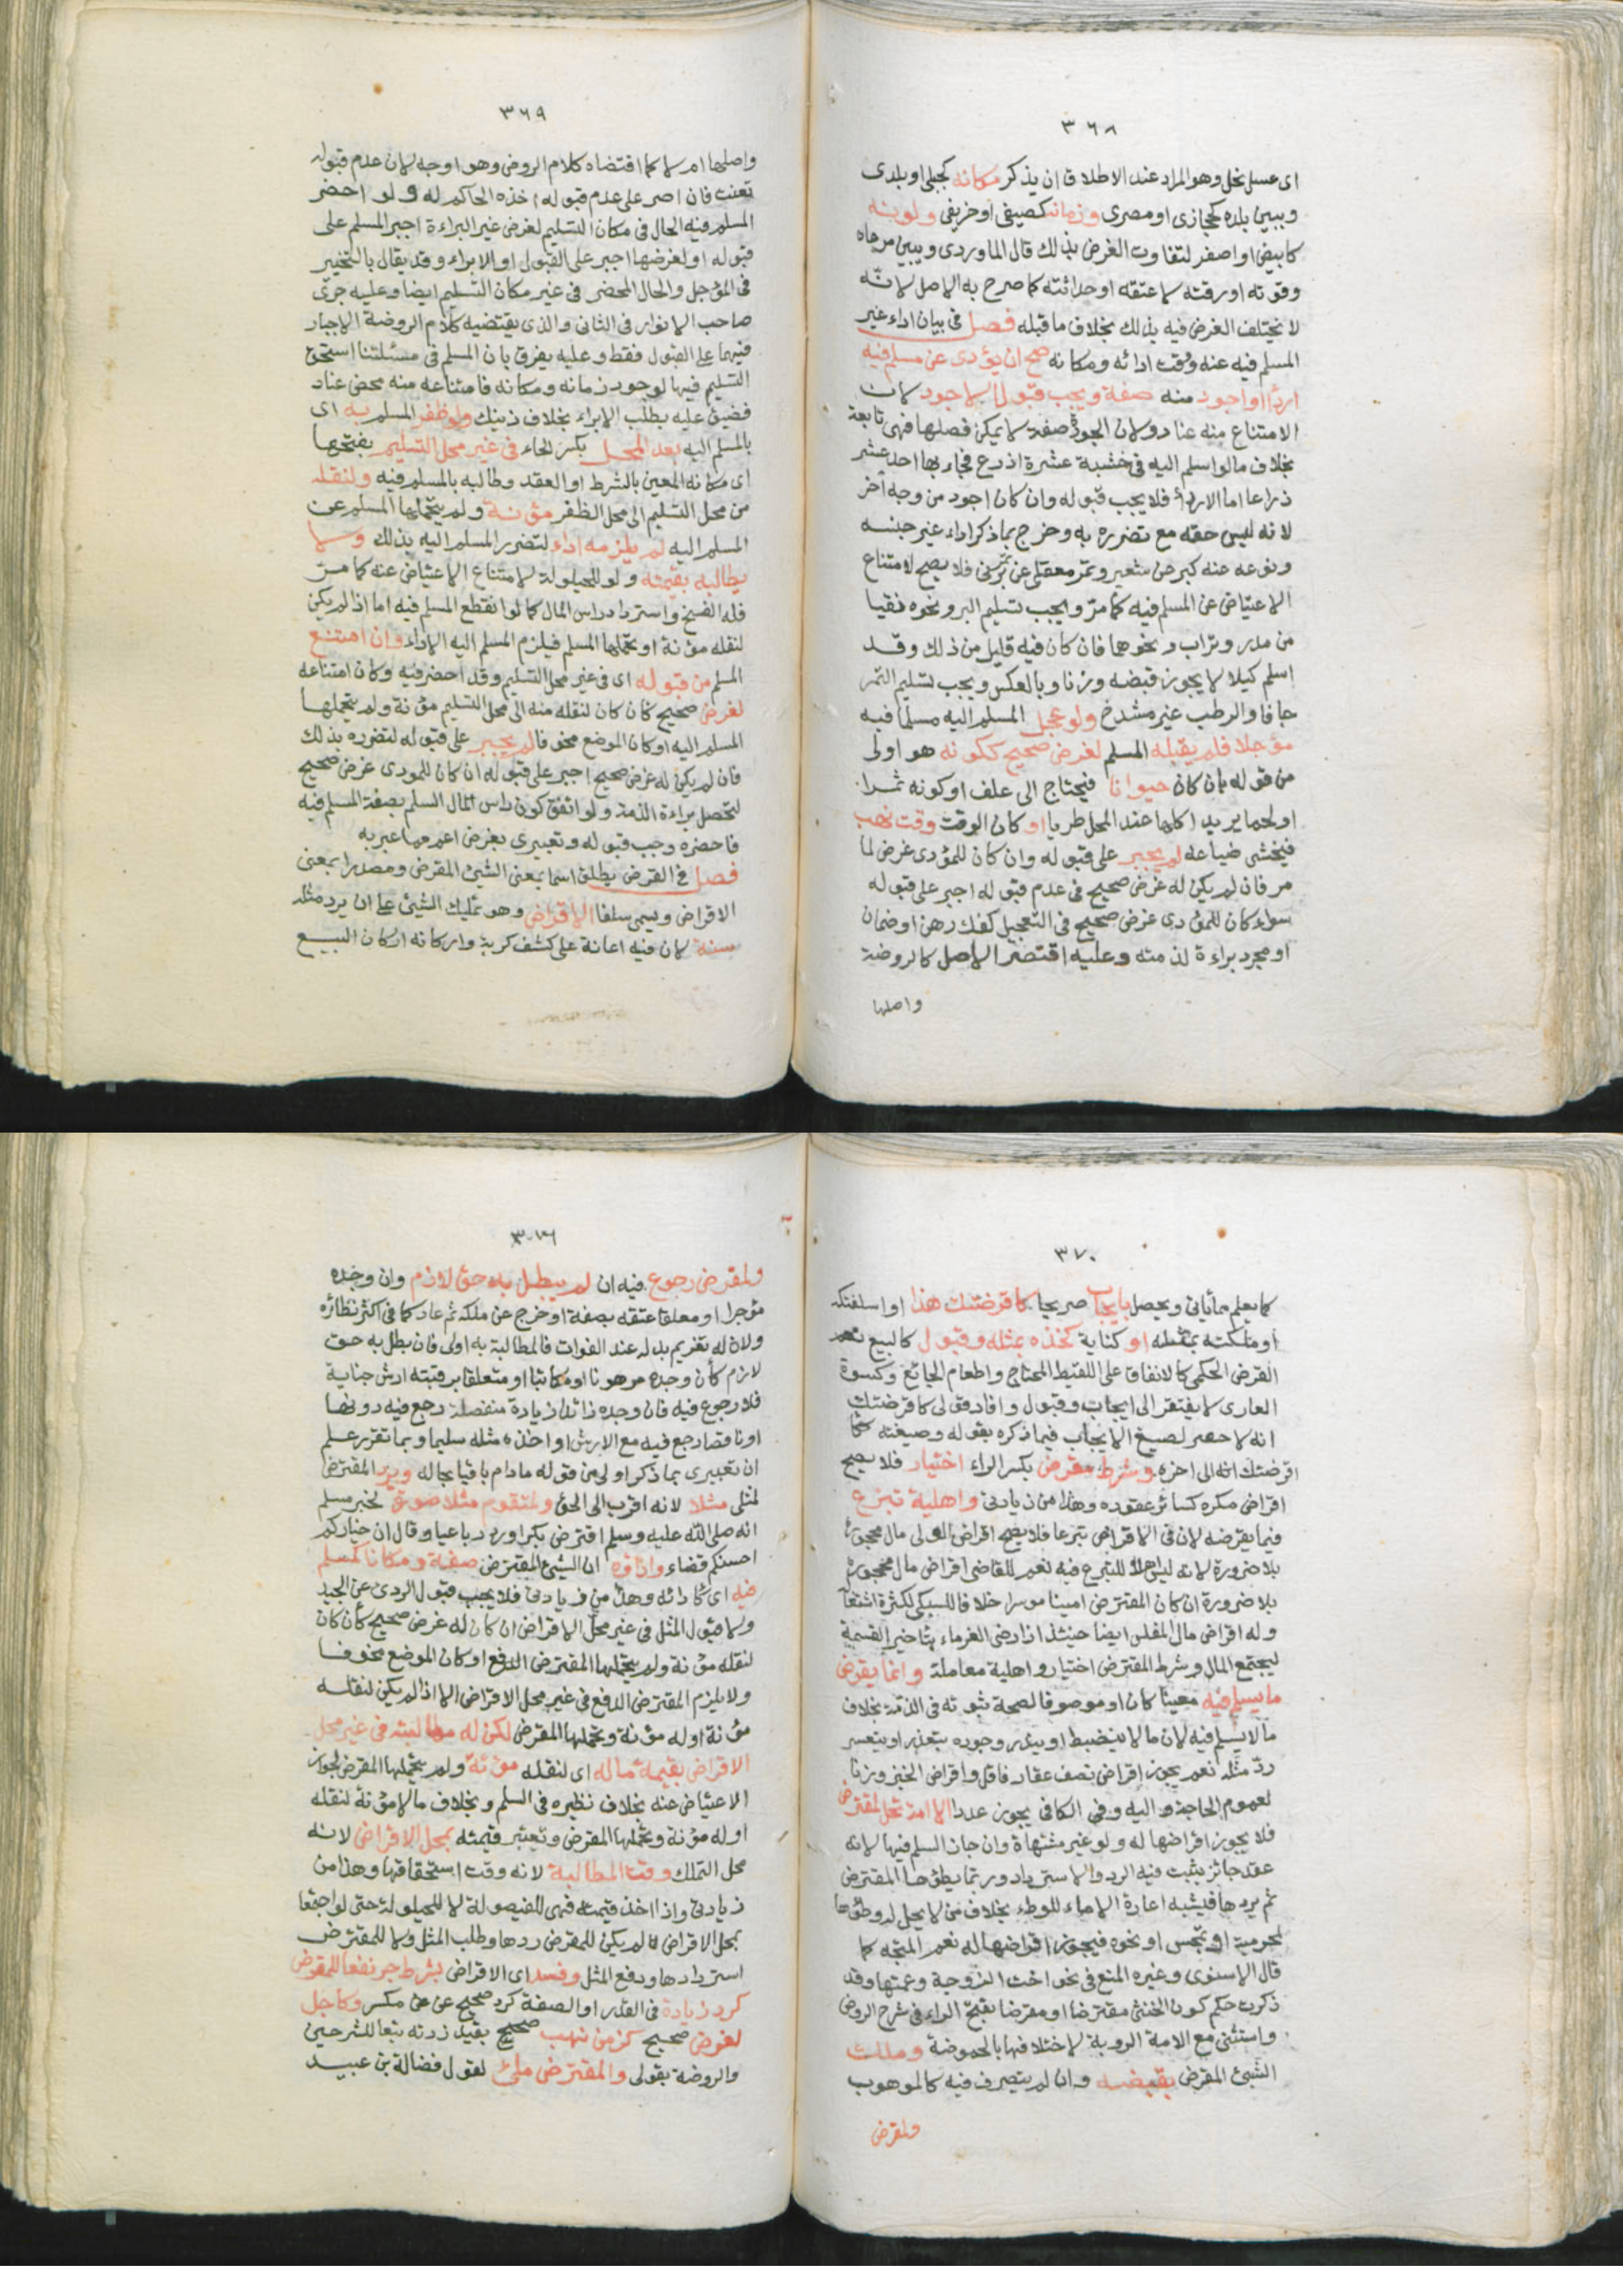 ٣٦٨
اى عسل نحل وهو المراد عند الاطلاق ان يذكر مكانه كجبلى او بلدى
ويبين بلده كحجازى او مصرى وزمانه كصيفى او خريفى ولونه
كابيض او اصفر لتفاوت الغرض بذلك قال الماوردى ويبين مرعاه
وقوته او رقته لا عتقه او حداثته كما صرح به الاصل لانه
لا يختلف الغرض فيه بذلك بخلاف ما قبله فصل فى بيان اداء غير
المسلم فيه عنه ووقت ادائه ومكانه صح ان يؤدى عن مسلم فيه
اردأ او اجود منه صفة ويجب قبول الاجود لان
الامتناع منه عناد ولان الجودة صفة لا يمكن فصلها فهى تابعة
بخلاف ما لو اسلم اليه فى خشبة عشرة اذرع فجاء بها احد عشر
ذراعا اما الاردأ فلا يجب قبوله وان كان اجود من وجه اخر
لانه ليس حقه مع تضرره به وخرج بما ذكر اداء غير جنسه
ونوعه عنه كبر عن شعير وتمر معقلى عن برنى فلا يصح لامتناع
الاعتياض عن المسلم فيه كما مر ويجب تسليم البر ونحوه نقيا
من مدر وتراب ونحوهما فان كان فيه قليل من ذلك وقد
اسلم كيلا لا يجوز قبضه وزنا وبالعكس ويجب تسليم التمر
جافا والرطب غير مشدخ ولو عجل المسلم اليه مسلما فيه
مؤجلا فلم يقبله المسلم لغرض صحيح ككونه هو اولى
من قوله بان كان حيوانا فيحتاج الى علف او كونه ثمرا
او لحما يريد اكلها عند المحل طريا او كان الوقت وقت نهب
فيخشى ضياعه لم يجبر على قبوله وان كان للمؤدى غرض لما
مر فان لم يكن له غرض صحيح فى عدم قبوله اجبر على قبوله
سواء كان للمؤدى غرض صحيح فى التعجيل كفك رهن او ضمان
او مجرد براءة لذمته وعليه اقتصر الاصل كالروضة
واصلها
٣٦٩
واصلها ام لا كما اقتضاه كلام الروض وهو اوجه لان عدم قبوله
تعنت فان اصر على عدم قبوله اخذه الحاكم له ولو احضر
المسلم فيه الحال فى مكان التسليم لغرض غير البراءة اجبر المسلم على
قبوله او لغرضها اجبر على القبول او الابراء وقد يقال بالتخيير
فى المؤجل والحال المحضر فى غير مكان التسليم ايضا وعليه جرى
صاحب الانوار فى الثانى والذى يقتضيه كلام الروضة الاجبار
فيهما على القبول فقط وعليه يفرق بان المسلم فى مسئلتنا استحق
التسليم فيها لوجود زمانه ومكانه فامتناعه منه محض عناد
فضيق عليه بطلب الابراء بخلاف ذينك ولو ظفر المسلم به اى
بالمسلم اليه بعد المحل بكسر الحاء فى غير محل التسليم بفتحها
اى مكانه المعين بالشرط او العقد وطالبه بالمسلم فيه ولنقله
من محل التسليم الى محل الظفر مؤنة ولم يتحملها المسلم عن
المسلم اليه لم يلزمه اداء لتضرر المسلم اليه بذلك ولا
يطالبه بقيمته ولو للحيلولة لامتناع الاعتياض عنه كما مر
فله الفسخ واسترداد راس المال كما لو انقطع المسلم فيه اما اذا لم يكن
لنقله مؤنة او تحملها المسلم فيلزم المسلم اليه الاداء وان امتنع
المسلم من قبوله اى فى غير محل التسليم وقد احضر فيه وكان امتناعه
لغرض صحيح كان كان لنقله منه الى محل التسليم مؤنة ولم يتحملها
المسلم اليه او كان الموضع مخوفا لم يجبر على قبوله لتضرره بذلك
فان لم يكن له غرض صحيح اجبر على قبوله ان كان للمودى غرض صحيح
لتحصل براءة الذمة ولو اتفق كون راس المال السلم بصفة المسلم فيه
فاحضره وجب قبوله وتعبيرى بغرض اعم مما عبر به
فصل فى القرض يطلق اسما بمعنى الشيئ المقرض ومصدرا بمعنى
الاقراض ويسمى سلفا الاقراض وهو تمليك الشيئ على ان يرد مثله
سنة لان فيه اعانة على كشف كربة واركانه اركان البيع
٣٧٠
كما يعلم مما ياتى ويحصل بايجاب صريحا كاقرضتك هذا او اسلفتكه
او ملكتكه بمثله او كناية كخذه بمثله وقبول كالبيع نعم
القرض الحكمى كالانفاق على اللقيط المحتاج واطعام الجائع وكسوة
العارى لا يفتقر الى ايجاب وقبول وافاد قولى كاقرضتك
انه لا حصر لصيغ الايجاب فيما ذكره بقوله وصيغته
اقرضتك الى اخره وشرط مقرض بكسر الراء اختيار فلا يصح
اقراض مكره كسائر عقوده وهذا من زيادتى واهلية تبرع
فيما يقرضه لان فى الاقراض تبرعا فلا يصح اقراض الولى مال محجوره
بلا ضرورة لانه ليس اهلا للتبرع فيه نعم للقاضى اقراض مال محجوره
بلا ضرورة ان كان المقترض امينا موسرا خلافا للسبكى لكثرة اشتغاله
وله اقراض مال المفلس ايضا حينئذ اذا رضى الغرماء بتاخير القسمة
ليجتمع المال وشرط المقترض اختيار واهلية معاملة وانما يقرض
ما يسلم فيه معينا كان او موصوفا لصحة ثبوته فى الذمة بخلاف
ما لا يسلم فيه لان ما لا ينضبط او يندر وجوده يتعذر او يتعسر
رد مثله نعم يجوز اقراض نصف عقار فاقل واقراض الخبز وزنا
لعموم الحاجة اليه وفى الكافى يجوز عددا الا امة تحل لمقترض
فلا يجوز اقراضها له ولو غير مشتهاة وان جاز السلم فيها لانه
عقد جائز يثبت فيه الرد والاسترداد وربما يطؤها المقترض
ثم يردها فيشبه اعارة الاماء للوطء بخلاف من لا يحل له وطؤها
لمحرمية او تمجس او نحوه فيجوز اقراضها له نعم المتجه كما
قال الاسنوى وغيره المنع فى نحو اخت الزوجة وعمتها وقد
ذكرت حكم كون الخنثى مقترضا او مقرضا بفتح الراء فى شرح الروض
واستثنى مع الامة الروبة لاختلافها بالحموضة وملك
الشيئ المقرض بقبضه وان لم يتصرف فيه كالموهوب
ولمقرض
ولمقرض رجوع فيه ان لم يبطل به حق لازم وان وجده
مؤجرا او معلقا عتقه بصفة او خرج عن ملكه ثم عاد كما فى اكثر نظائره
ولان له تغريم بدله عند الفوات فالمطالبة به اولى فان بطل به حق
لازم كأن وجده مرهونا او مكاتبا او متعلقا برقبته ارش جناية
فلا رجوع فيه فان وجده زائدا زيادة منفصلة رجع فيه دونها
او ناقصا رجع فيه مع الارش او اخذ مثله سليما وبما تقرر علم
ان تعبيرى بما ذكر اولى من قوله مادام باقيا بحاله ويرد المقترض
لمثلى مثلا لانه اقرب الى الحق ولمتقوم مثلا صورة لخبر مسلم
انه صلى الله عليه وسلم اقترض بكرا ورد رباعيا وقال ان خياركم
احسنكم قضاء واداؤه اى الشيئ المقترض صفة ومكانا كمسلم
فيه اى كادائه وهذا من زيادتى فلا يجب قبول الردئ عن الجيد
ولا قبول المثل فى غير محل الاقراض ان كان له غرض صحيح كأن كان
لنقله مؤنة ولم يتحملها المقترض الدفع او كان الموضع مخوفا
ولا يلزم المقترض الدفع فى غير محل الاقراض الا اذا لم يكن لنقله
مؤنة او له مؤنة وتحملها المقرض لكن له مطالبته فى غير محل
الاقراض بقيمة ماله اى لنقله مؤنة ولم يتحملها المقرض لجواز
الاعتياض عنه بخلاف نظيره فى السلم وبخلاف ما لا مؤنة لنقله
او له مؤنة وتحملها المقرض وتعتبر قيمته بمحل الاقراض لانه
محل التملك وقت المطالبة لانه وقت استحقاقها وهذا من
زيادتى واذا اخذ قيمته فهى للفيصولة لا للحيلولة حتى لو اجتمعا
بمحل الاقراض لم يكن للمقرض ردها وطلب المثل ولا للمقترض
استردادها ودفع المثل وفسد اى الاقراض بشرط جر نفعا للمقرض
كرد زيادة فى القدر او الصفة كرد صحيح عن مكسر وكاجل
لغرض صحيح كزمن نهب صحيح بقيد زدته تبعا للشرحين
والروضة بقولى والمقترض ملئ لقول فضالة بن عبيد